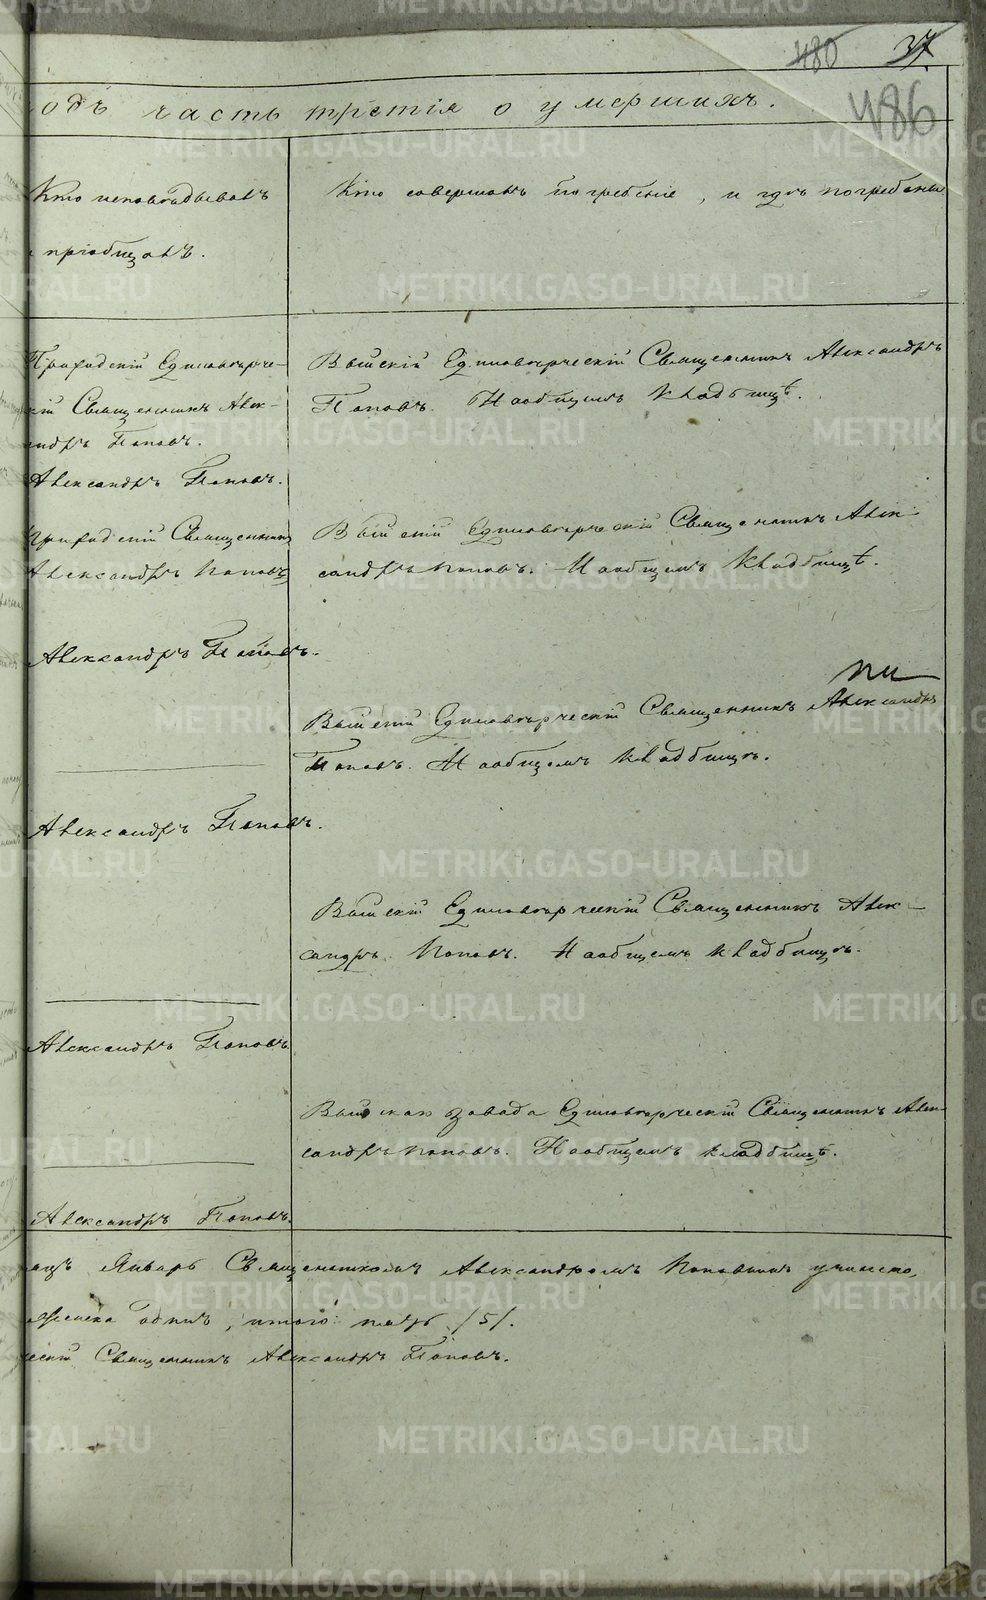 480 37
486
одъ часть третія о умершихъ.
Кто исповѣдывалъ
и пріобщалъ.
Кто совершалъ погребеніе, и гдѣ погребены
Приходскій Единовѣрче-
скій Священникъ Алек-
сандръ Поповъ.
Александръ Поповъ.
Выйскій Единовѣрческій Священникъ Александръ
Поповъ. На общемъ кладбищѣ.
Приходскій Священникъ
Александръ Поповъ
Александръ Поповъ.
Выйскій Единовѣрческій Священникъ Алек-
сандръ Поповъ. На общемъ кладбищѣ.
Выйскій Единовѣрческій Священникъ Александръ
Поповъ. На общемъ кладбищѣ.
Александръ Поповъ.
Выйскій Единовѣрческій Священникъ Алек-
сандръ Поповъ. На общемъ кладбищѣ.
Александръ Поповъ.
Выйскаго завода Единовѣрческій Священникъ Алек-
сандръ Поповъ. На общемъ кладбищѣ.
Александръ Поповъ.
яцъ Январь Священникомъ Александромъ Поповымъ
одинъ, итого: пять /5/.
ческій Священникъ Александръ Поповъ.
METRIKI.GASO-URAL.RU